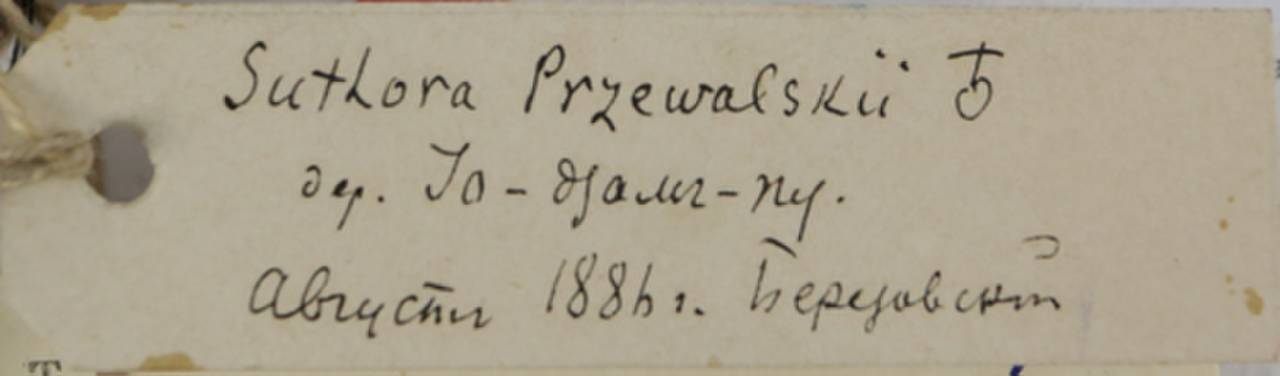 Suthora Przewalskii ♁
дер. Іо-дзамъ-пу.
Августъ 1886 г. Березовскій
Т